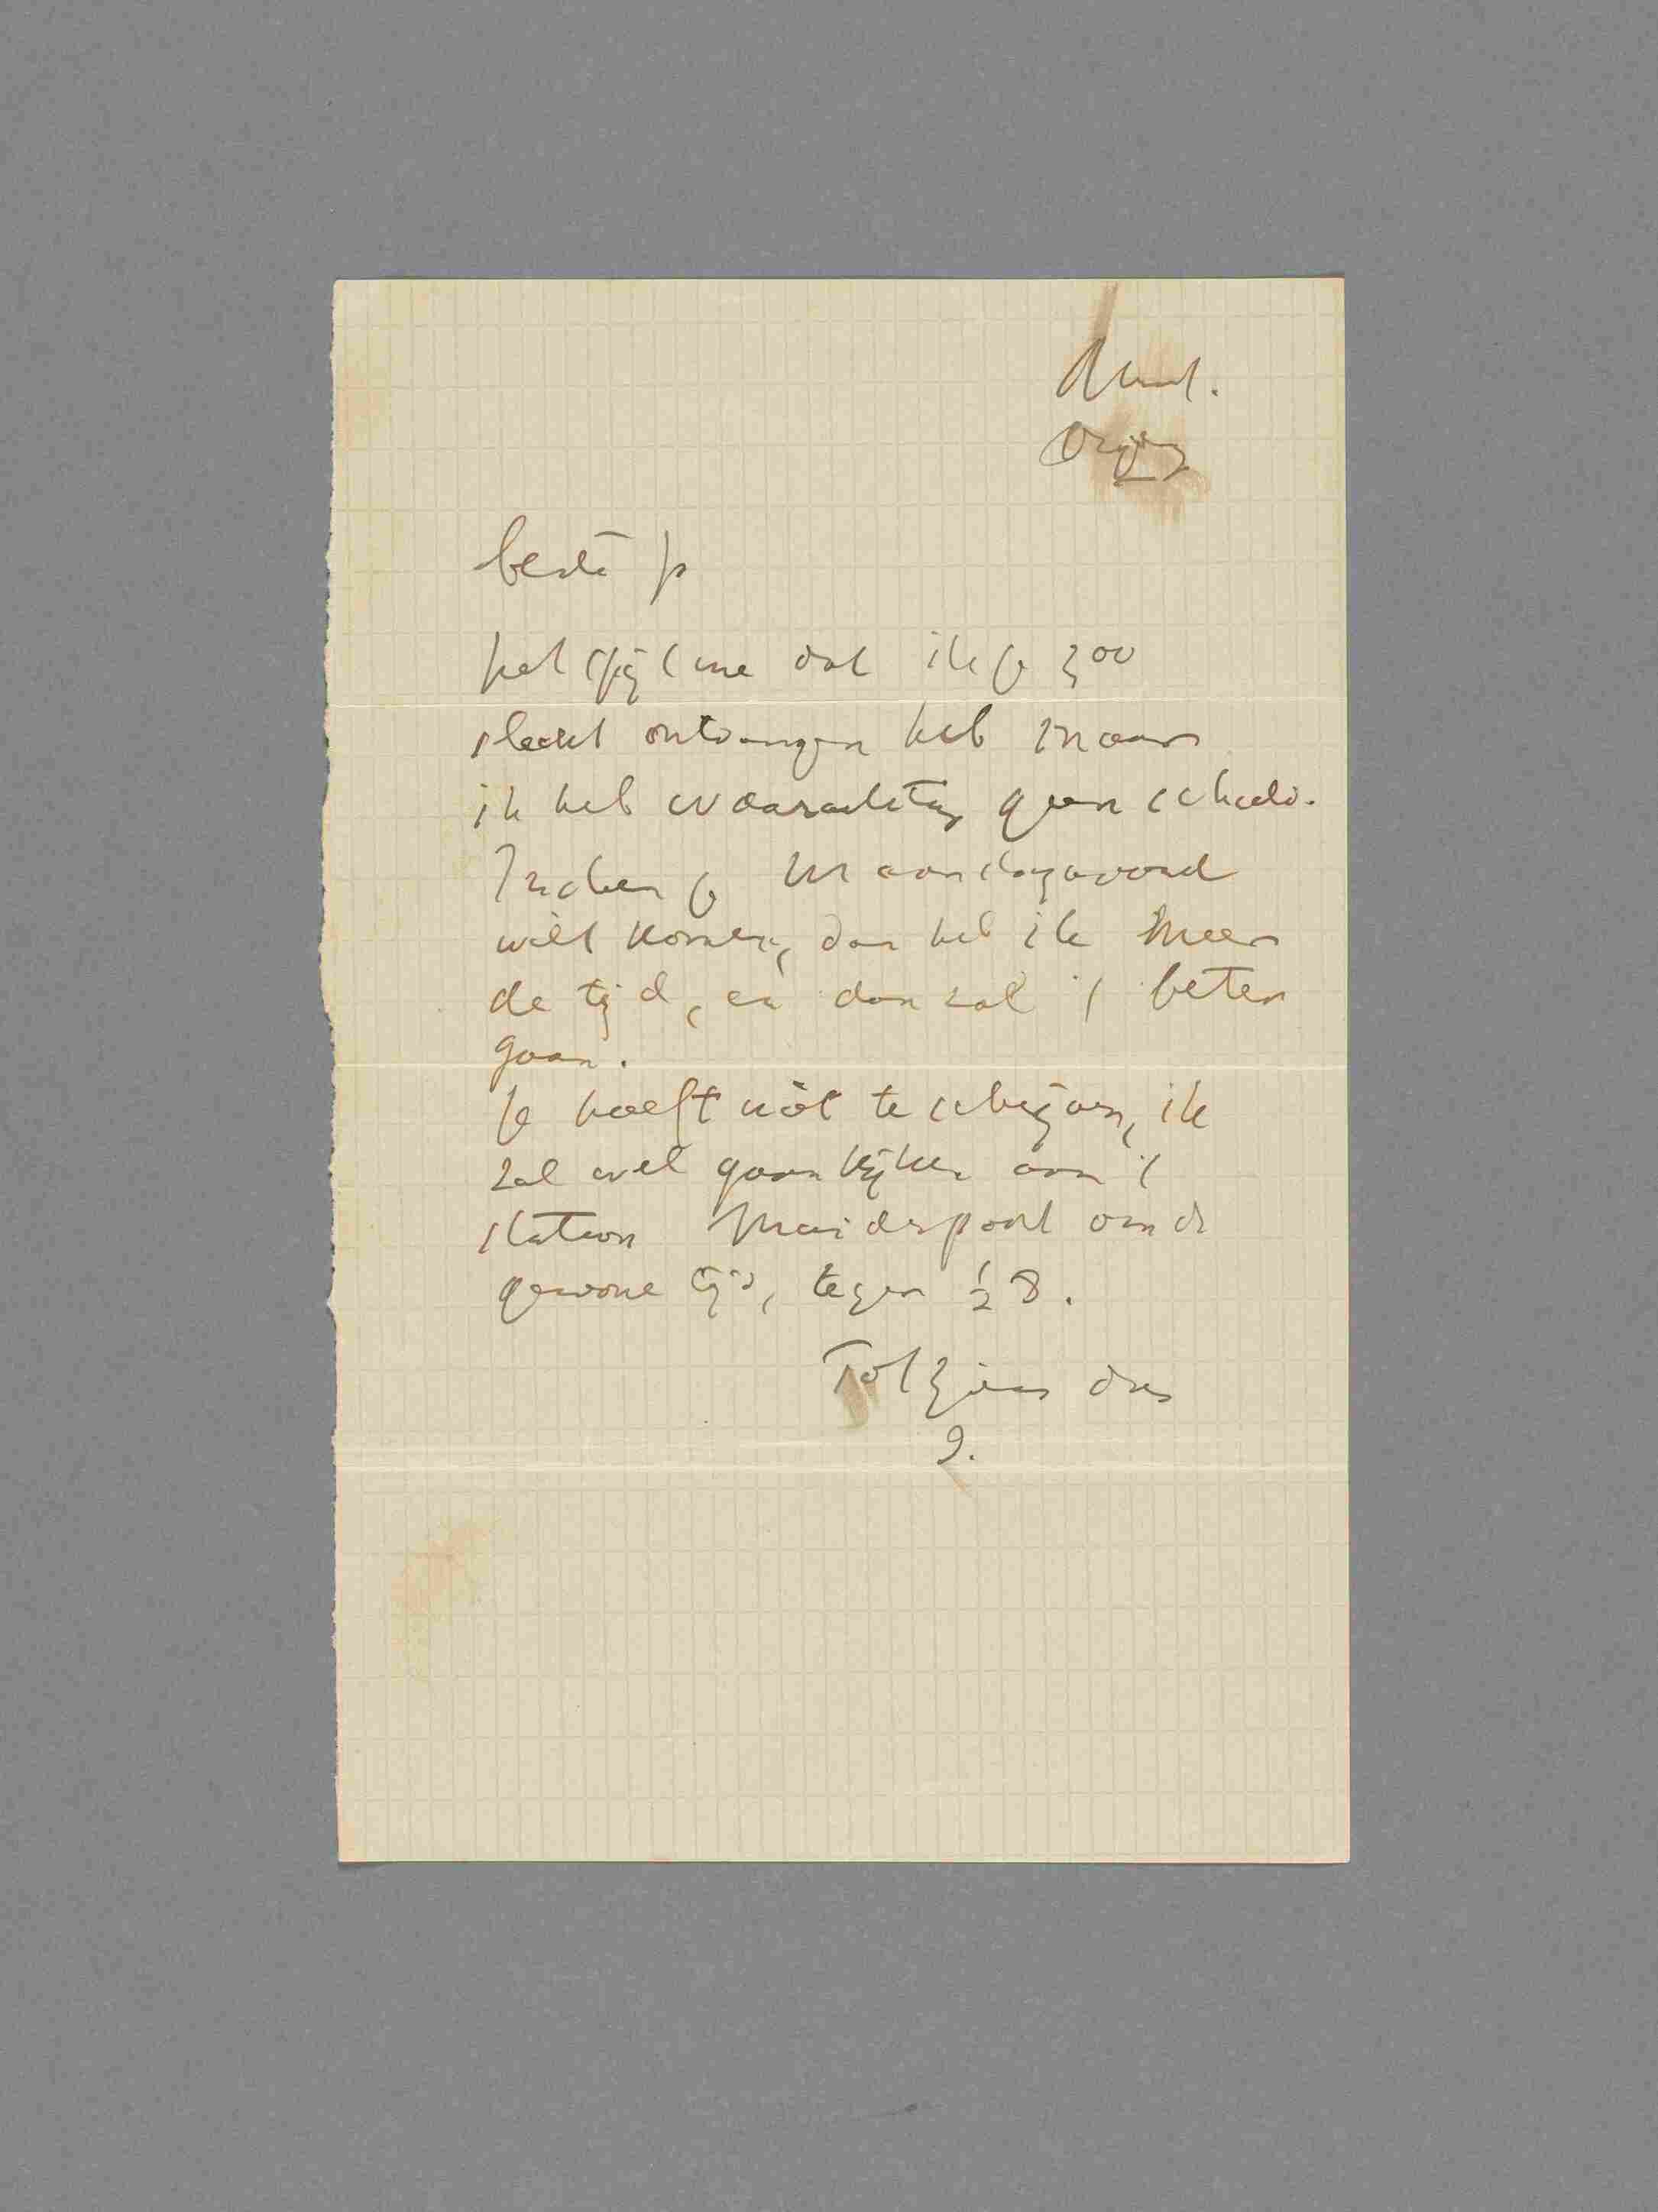 Amst.
beste Jo
het spijt me dat ik je zoo
slecht ontvangen heb maar
ik heb waarachtig geen schuld.
Indien je Maandagavond
wilt komen, dan heb ik meer
de tijd, en dan zal 't beter
gaan.
Je hoeft niet te schrijven, ik
zal wel gaan kijken aan 't
station Muiderpoort om de
gewone tijd, tegen ½ 8.
Tot ziens dus